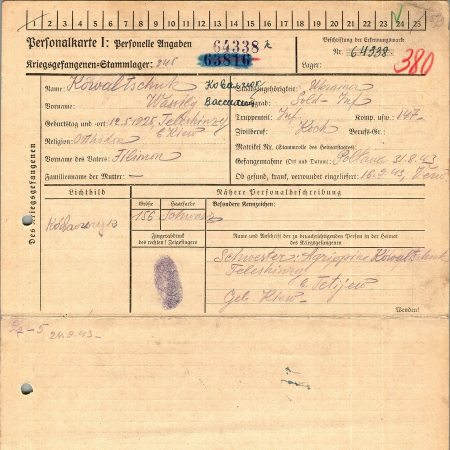 1 2 3 4 5 6 7 8 9 10 11 12 13 14 15 16 17 18 19 20 21 22 23 24 25
Personalkarte I: Personelle Angaben
64338
Beschriftung der Erkennungsmarke
Kriegsgefangenen-Stammlager:
63816
Nr. 64338
Lager:
380
Des Kriegsgefangenen
Name: Kowaltschuk Ковальчук
Staatsangehörigkeit: Ukrainer
Vorname: Wassily Василий
Dienstgrad: Sold - Inf
Geburtstag und -ort: 12.5.1925 Teleshinzy
Truppenteil: Inf Komp. usw.: 147-
Kiew
Religion: Orthodox
Zivilberuf: Koch Berufs-Gr.:
Vorname des Vaters: Filimon
Matrikel Nr. (Stammrolle des Heimatstaates):
Gefangennahme (Ort und Datum): Poltawa 31.8.43
Familienname der Mutter: —
Ob gesund, krank, verwundet eingeliefert:
Lichtbild
Nähere Personalbeschreibung
Größe Haarfarbe Besondere Kennzeichen:
156 Schwarz
Fingerabdruck
des rechten! Zeigefingers
Name und Anschrift der zu benachrichtigenden Person in der Heimat
des Kriegsgefangenen
Schwester: Agrippina Kowaltschuk
Teleshinzy
Tetijew
Geb. Kiew
Wenden!
-5 24.9.43-